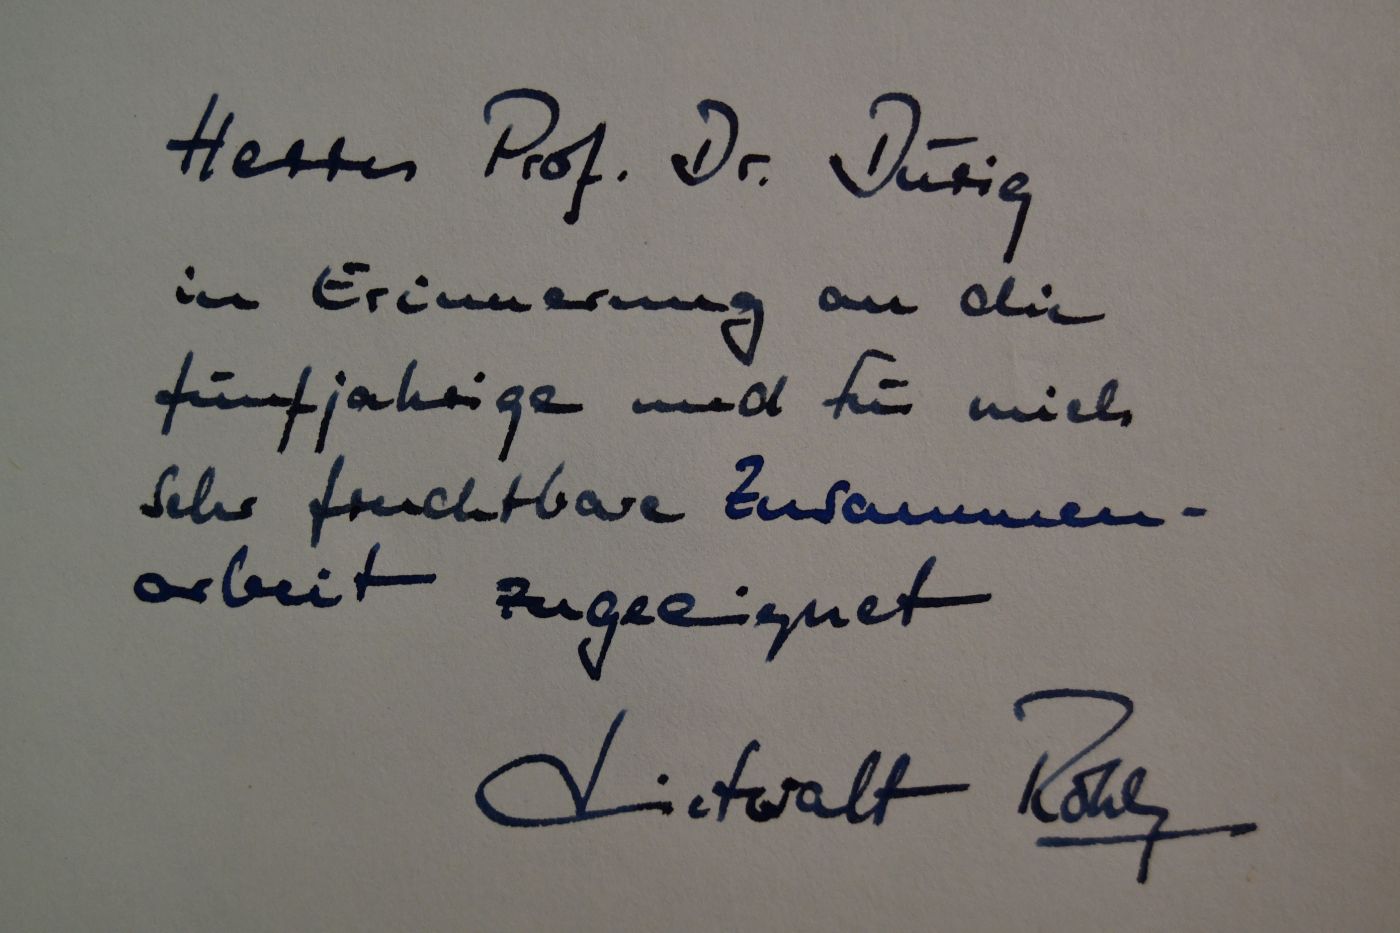 Herrn Prof. Dr. Dürig
in Erinnerung an die
fünfjährige und für mich
sehr fruchtbare Zusammen-
arbeit zugeeignet
Dietwalt Rohlf